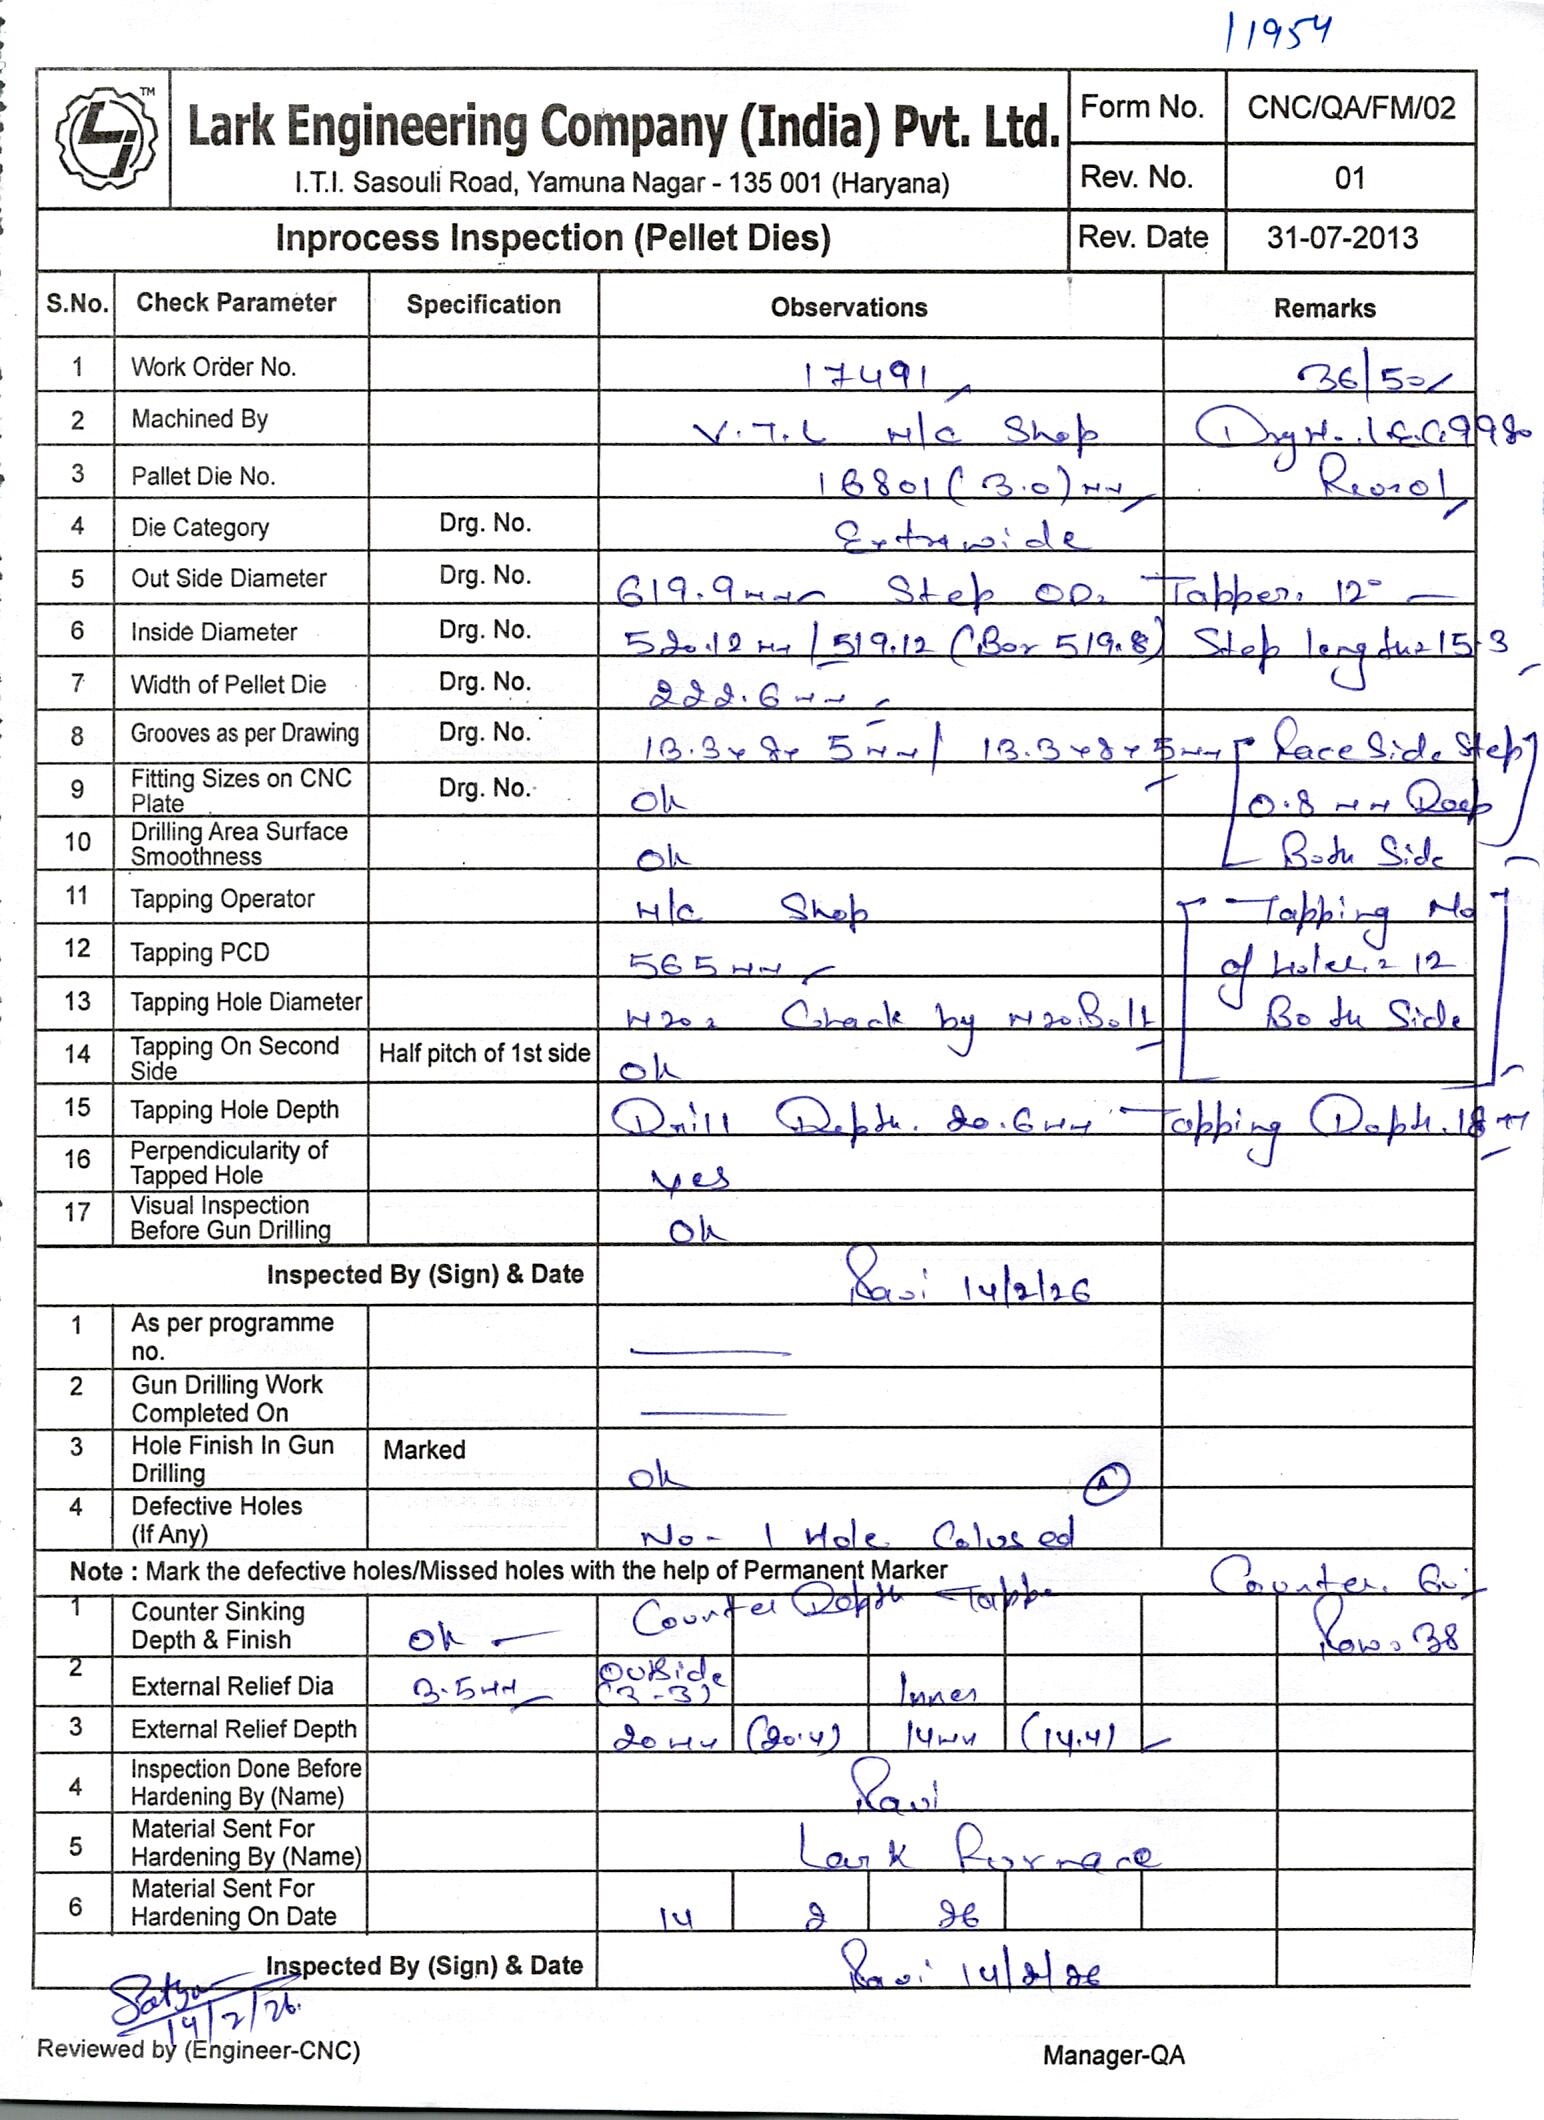 11954
TM
Lark Engineering Company (India) Pvt. Ltd.
I.T.I. Sasouli Road, Yamuna Nagar - 135 001 (Haryana)
Form No. CNC/QA/FM/02
Rev. No. 01
Inprocess Inspection (Pellet Dies) Rev. Date 31-07-2013
S.No. Check Parameter Specification Observations Remarks
1 Work Order No. 17491 36/50
2 Machined By V.T.L M/C Shop Drg No. LEC9980
3 Pallet Die No. 16801 (3.0) mm Rev01
4 Die Category Drg. No. Extrawide
5 Out Side Diameter Drg. No. 619.9mm Step OD. Tapper. 12°
6 Inside Diameter Drg. No. 520.12 mm / 519.12 (Bor 519.8) Step length = 15.3
7 Width of Pellet Die Drg. No. 222.6 mm
8 Grooves as per Drawing Drg. No. 13.3 x 8 x 5 mm / 13.3 x 8 x 5 mm Race Side Step
9 Fitting Sizes on CNC Plate Drg. No. Ok 0.8 mm Deep
10 Drilling Area Surface Smoothness Ok Both Side
11 Tapping Operator M/C Shop Tapping No
12 Tapping PCD 565 mm of holes = 12
13 Tapping Hole Diameter M20 = Chack by M20 Bolt Both Side
14 Tapping On Second Side Half pitch of 1st side Ok
15 Tapping Hole Depth Drill Depth. 20.6 mm Tapping Depth. 18 mm
16 Perpendicularity of Tapped Hole yes
17 Visual Inspection Before Gun Drilling Ok
Inspected By (Sign) & Date Ravi 14/2/26
1 As per programme no.
2 Gun Drilling Work Completed On
3 Hole Finish In Gun Drilling Marked Ok A
4 Defective Holes (If Any) No - 1 Hole Colused
Note : Mark the defective holes/Missed holes with the help of Permanent Marker Counter.
1 Counter Sinking Depth & Finish Ok Counter Depth Tappe Row = 38
2 External Relief Dia 3.5 mm Outside (3-3) Inner
3 External Relief Depth 20 mm (20.4) 14 mm (14.4)
4 Inspection Done Before Hardening By (Name) Ravi
5 Material Sent For Hardening By (Name) Lark Furnace
6 Material Sent For Hardening On Date 14 2 26
Inspected By (Sign) & Date Ravi 14/2/26
Satya
14/2/26.
Reviewed by (Engineer-CNC) Manager-QA